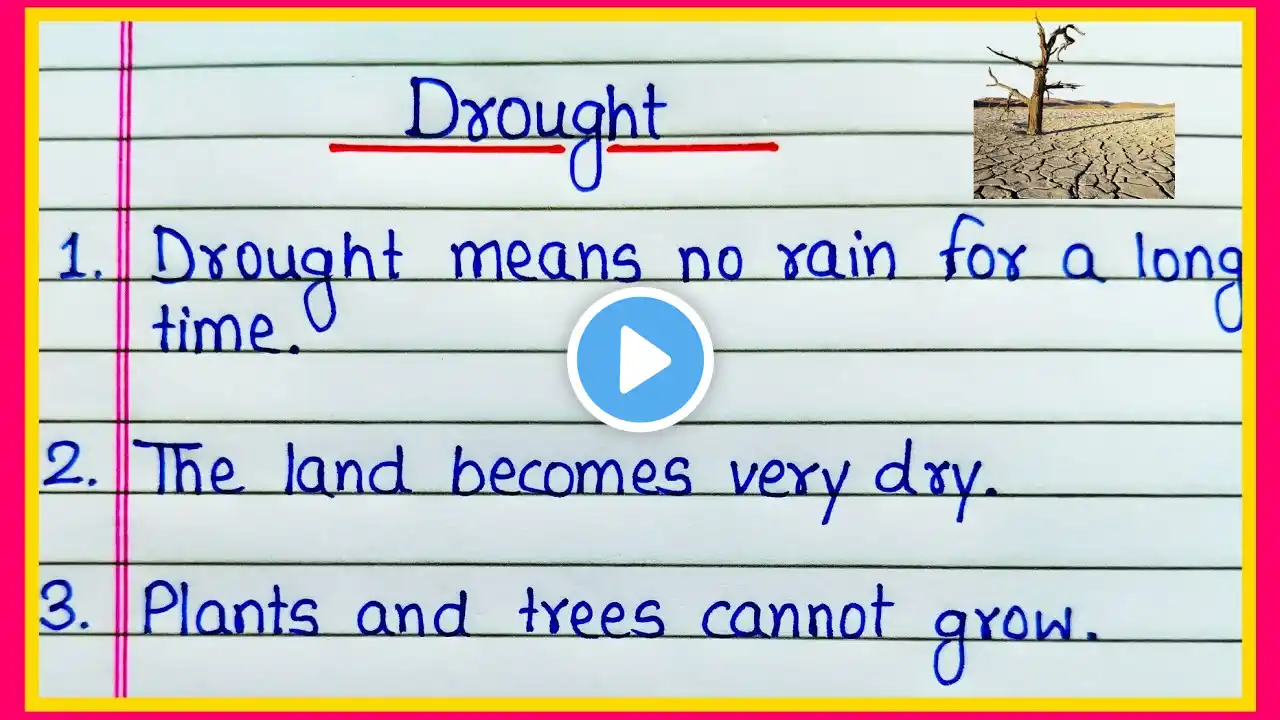 Drought
1. Drought means no rain for a long
time.
2. The land becomes very dry.
3. Plants and trees cannot grow.